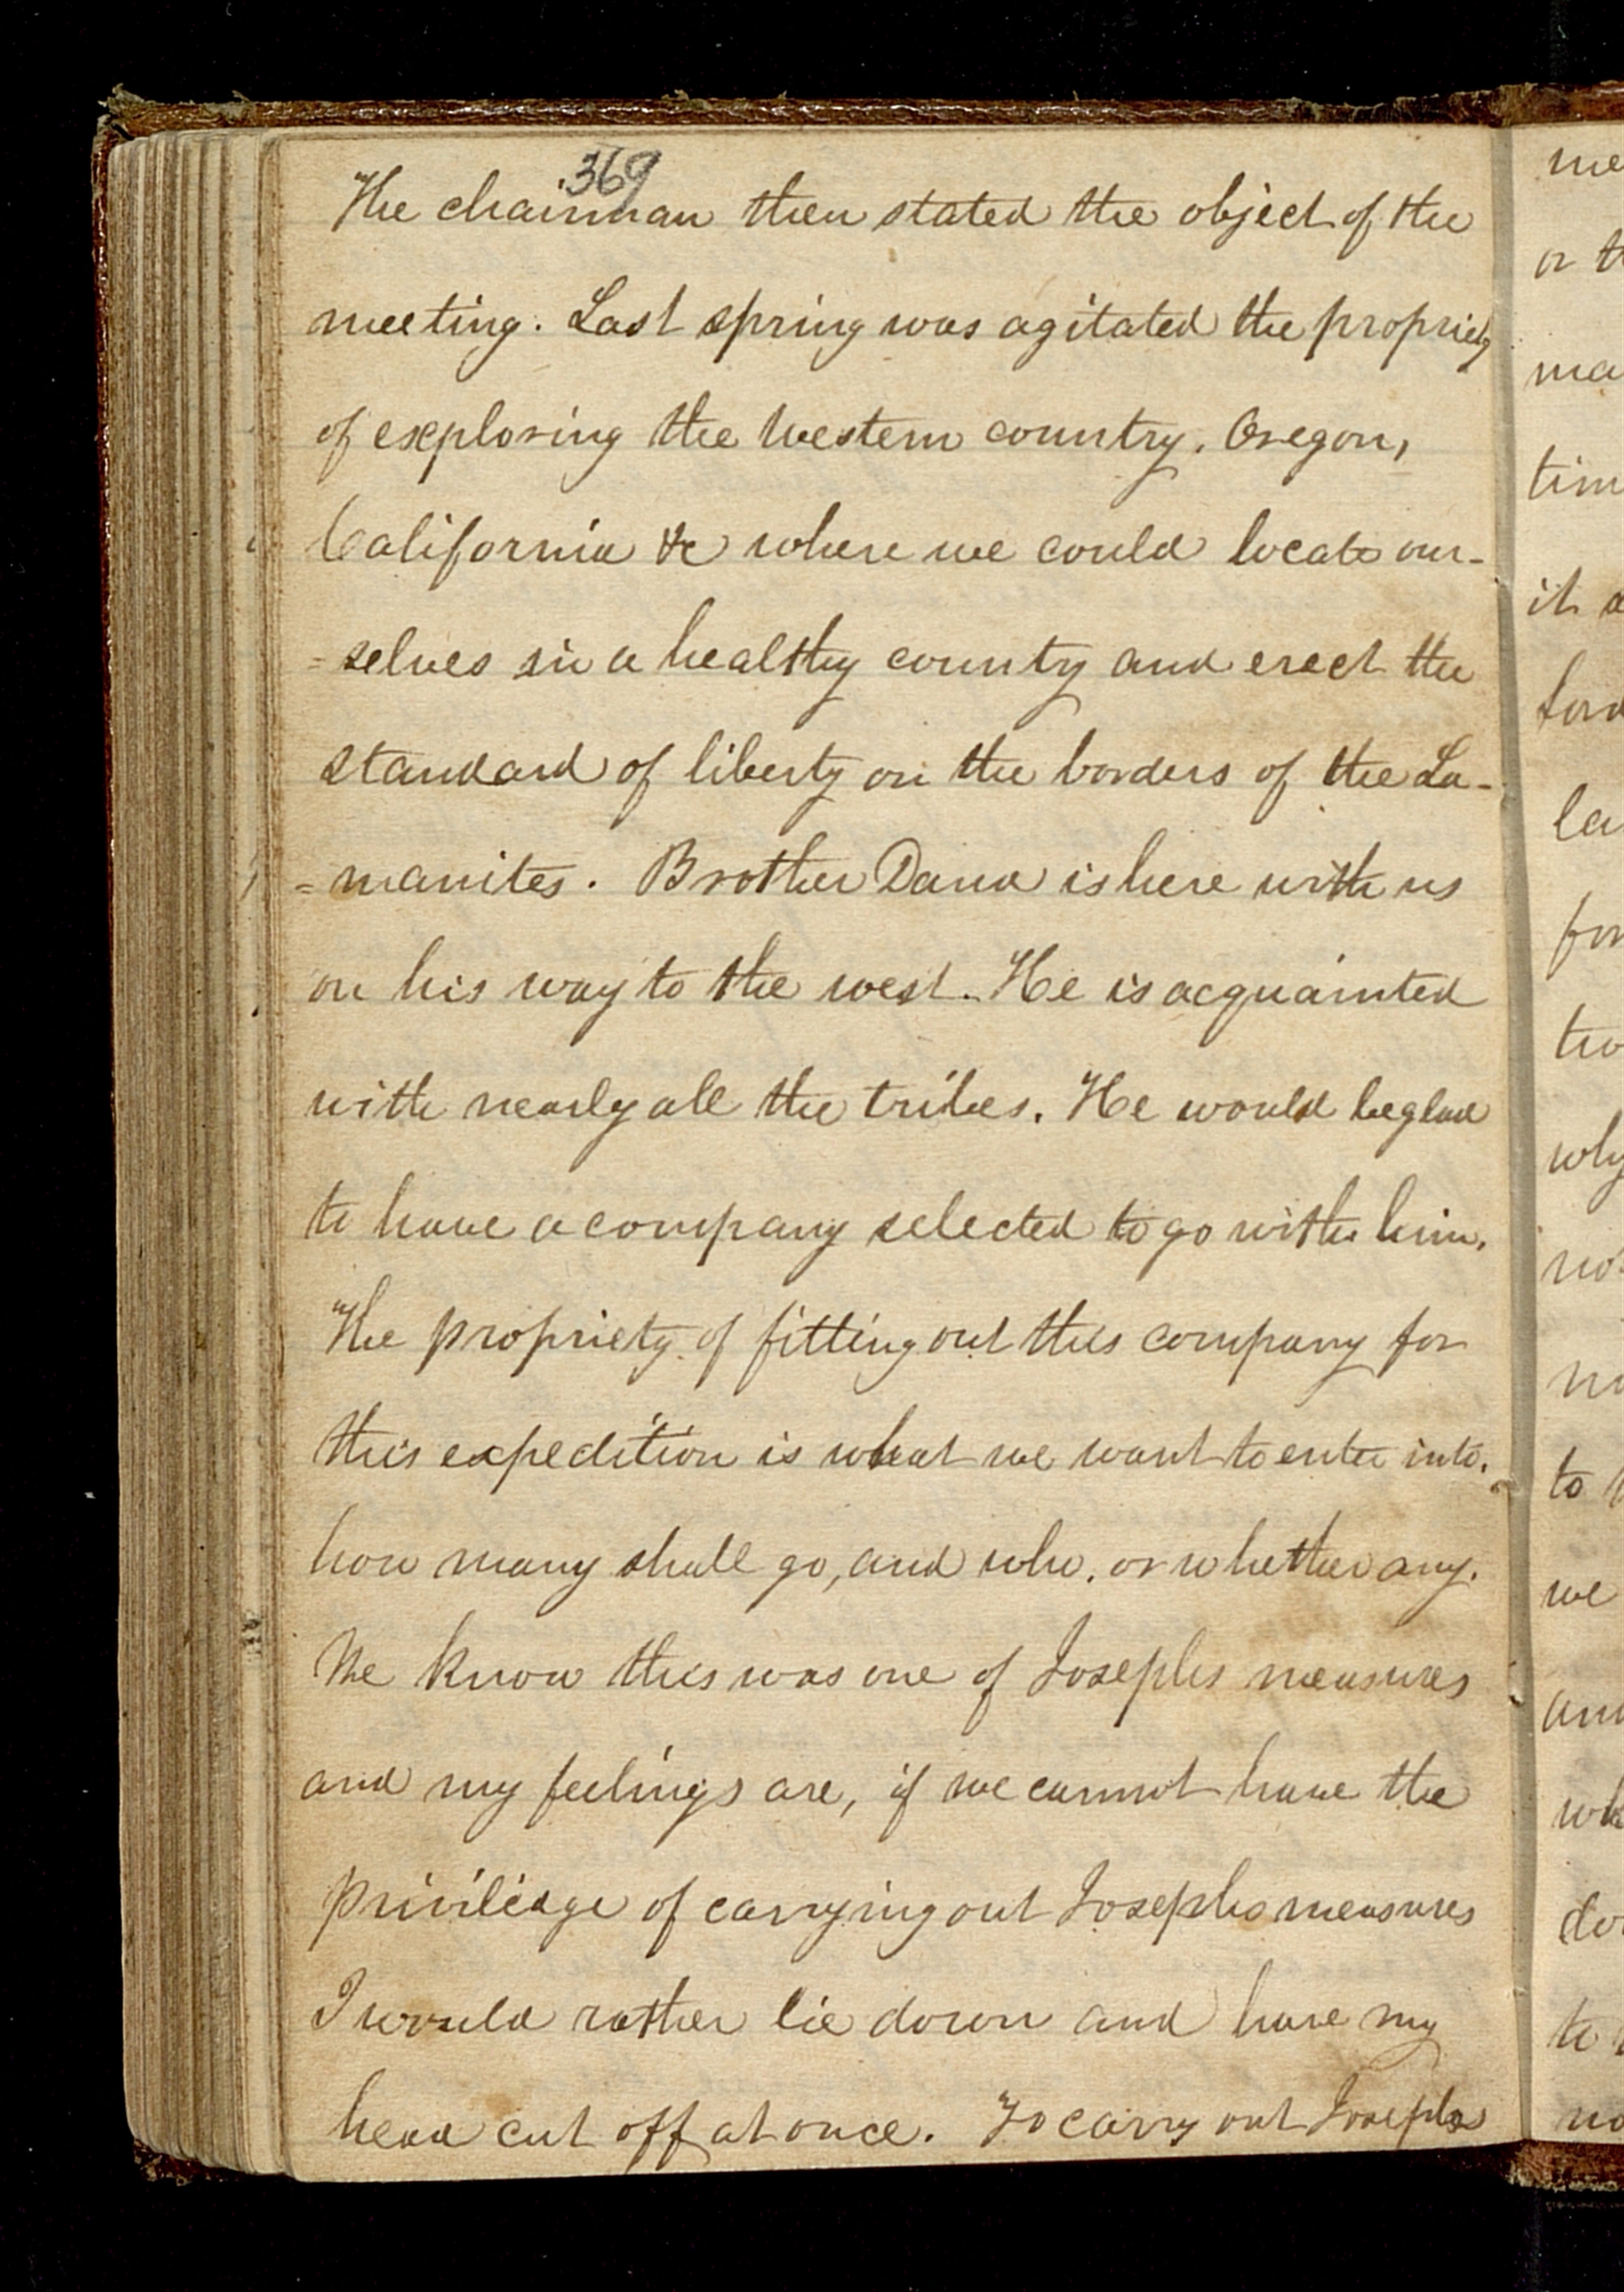 369
The chairman then stated the object of the
meeting. Last spring was agitated the propriety
of exploring the Western country, Oregon,
California &c where we could locate our-
=selves in a healthy county and erect the
standard of liberty on the borders of the La-
=manites. Brother Dana is here with us
on his way to the west. He is acquainted
with nearly all the tribes. He would be glad
to have a company selected to go with him.
The propriety of fitting out this company for
this expedition is what we want to enter into.
how many shall go, and who, or whether any.
We know this was one of Josephs measures
and my feelings are, if we cannot have the
priviledge of carrying out Josephs measures
I would rather lie down and have my
head cut off at once. To carry out Josephs
me
or t
ma
tim
it
la
for
why
to
we
am
wh
do
to
no